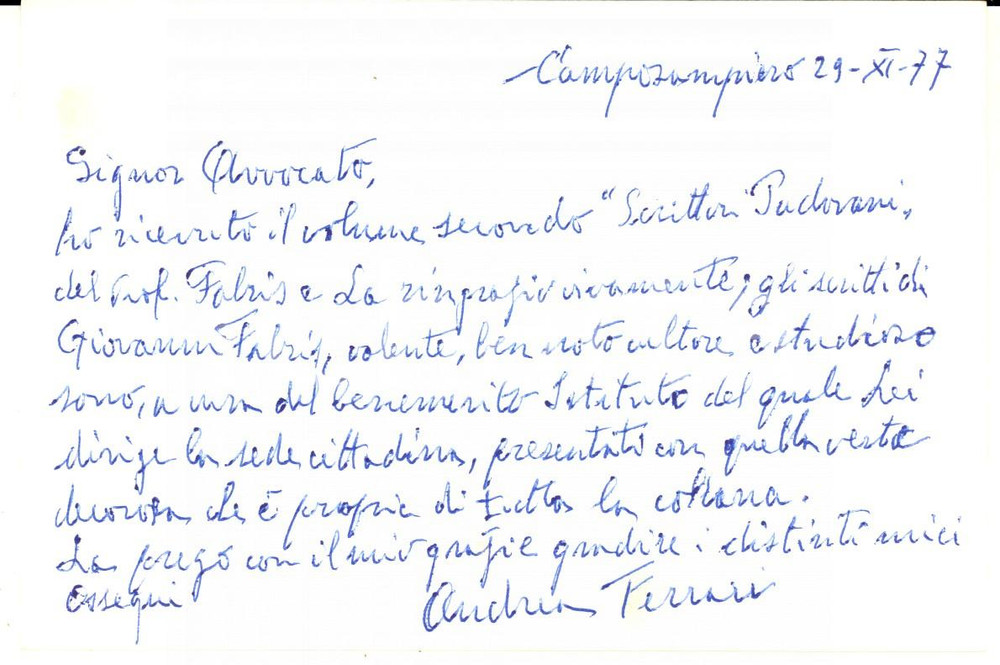 Camposampiero 29-XI-77
Signor Avvocato,
ho ricevuto il volume secondo "Scrittori Padovani"
del Prof. Fabris e La ringrazio vivamente; gli scritti di
Giovanni Fabris, valente, ben noto cultore e studioso
sono, a cura del benemerito Istituto del quale Lei
dirige la sede cittadina, presentati con quella veste
decorosa che è propria di tutta la collana.
La prego con il mio grazie gradire i distinti miei
ossequi
Andrea Ferrari